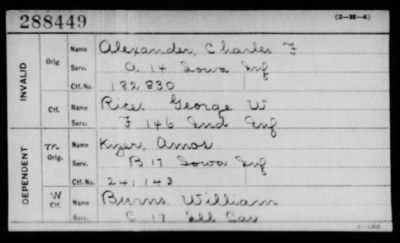 288449
INVALID
Orig
Name Alexander, Charles F
Serv. A 14 Iowa Inf
Ctf. No. 182 830
Ctf.
Name Rice, George W
Serv. F 146 Ind Inf
DEPENDENT
m
Orig.
Name Kyzer, Amos
Serv. B 17 Iowa Inf
Ctf. No. 241 143
W
Ctf.
Name Burns William
Serv. C 17 Ill Cav